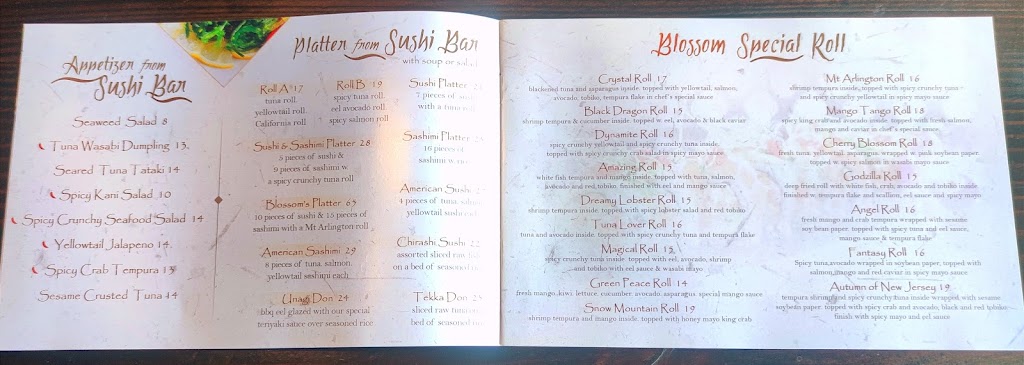 Appetizer from
Sushi Bar
Seaweed Salad 8
Tuna Wasabi Dumpling 13
Seared Tuna Tataki 14
Spicy Kani Salad 10
Spicy Crunchy Seafood Salad 14
Yellowtail Jalapeno 14
Spicy Crab Tempura 13
Sesame Crusted Tuna 14
Platter from Sushi Bar
with soup or salad
Roll A 17
tuna roll.
yellowtail roll.
California roll
Roll B 19
spicy tuna roll.
eel avocado roll.
spicy salmon roll
Sushi & Sashimi Platter 28
5 pieces of sushi &
9 pieces of sashimi w.
a spicy crunchy tuna roll
Blossom's Platter 65
10 pieces of sushi & 15 pieces of
sashimi with a Mt Arlington roll
American Sashimi 29
8 pieces of tuna. salmon.
yellowtail sashimi each
Unagi Don 24
bbq eel glazed with our special
teriyaki sauce over seasoned rice
Sushi Platter
7 pieces of
with a tuna
Sashimi Platter
16 pieces of
sashimi w.
American Sushi
4 pieces of tuna.
yellowtail sushi
Chirashi Sushi
assorted sliced raw
on a bed of seasoned
Tekka Don
sliced raw tuna
bed of seasoned
Blossom Special Roll
Crystal Roll 17
blackened tuna and asparagus inside. topped with yellowtail, salmon,
avocado, tobiko, tempura flake in chef's special sauce
Black Dragon Roll 15
shrimp tempura & cucumber inside. topped w. eel, avocado & black caviar
Dynamite Roll 16
spicy crunchy yellowtail and spicy crunchy tuna inside.
topped with spicy crunchy crab salad in spicy mayo sauce
Amazing Roll 15
white fish tempura and mango inside. topped with tuna, salmon,
avocado and red tobiko. finished with eel and mango sauce
Dreamy Lobster Roll 15
shrimp tempura inside. topped with spicy lobster salad and red tobiko
Tuna Lover Roll 16
tuna and avocado inside. topped with spicy crunchy tuna and tempura flake
Magical Roll 15
spicy crunchy tuna inside. topped with eel, avocado, shrimp
and tobiko with eel sauce & wasabi mayo
Green Peace Roll 14
fresh mango, kiwi, lettuce, cucumber, avocado, asparagus. special mango sauce
Snow Mountain Roll 19
shrimp tempura and mango inside. topped with honey mayo king crab
Mt Arlington Roll 16
shrimp tempura inside, topped with spicy crunchy tuna
and spicy crunchy yellowtail in spicy mayo sauce
Mango Tango Roll 18
spicy king crab and avocado inside. topped with fresh salmon,
mango and caviar in chef's special sauce
Cherry Blossom Roll 18
fresh tuna. yellowtail. asparagus. wrapped w. pink soybean paper.
topped w. spicy salmon in wasabi mayo sauce
Godzilla Roll 15
deep fried roll with white fish, crab, avocado and tobiko inside
finished w. tempura flake and scallion, eel sauce and spicy mayo
Angel Roll 16
fresh mango and crab tempura wrapped with sesame
soy bean paper. topped with spicy tuna and eel sauce,
mango sauce & tempura flake
Fantasy Roll 16
Spicy tuna, avocado wrapped in soybean paper, topped with
salmon, mango and red caviar in spicy mayo sauce
Autumn of New Jersey 19
tempura shrimp and spicy crunchy tuna inside wrapped with sesame
soybean paper. topped with spicy crab and avocado, black and red tobiko.
finish with spicy mayo and eel sauce